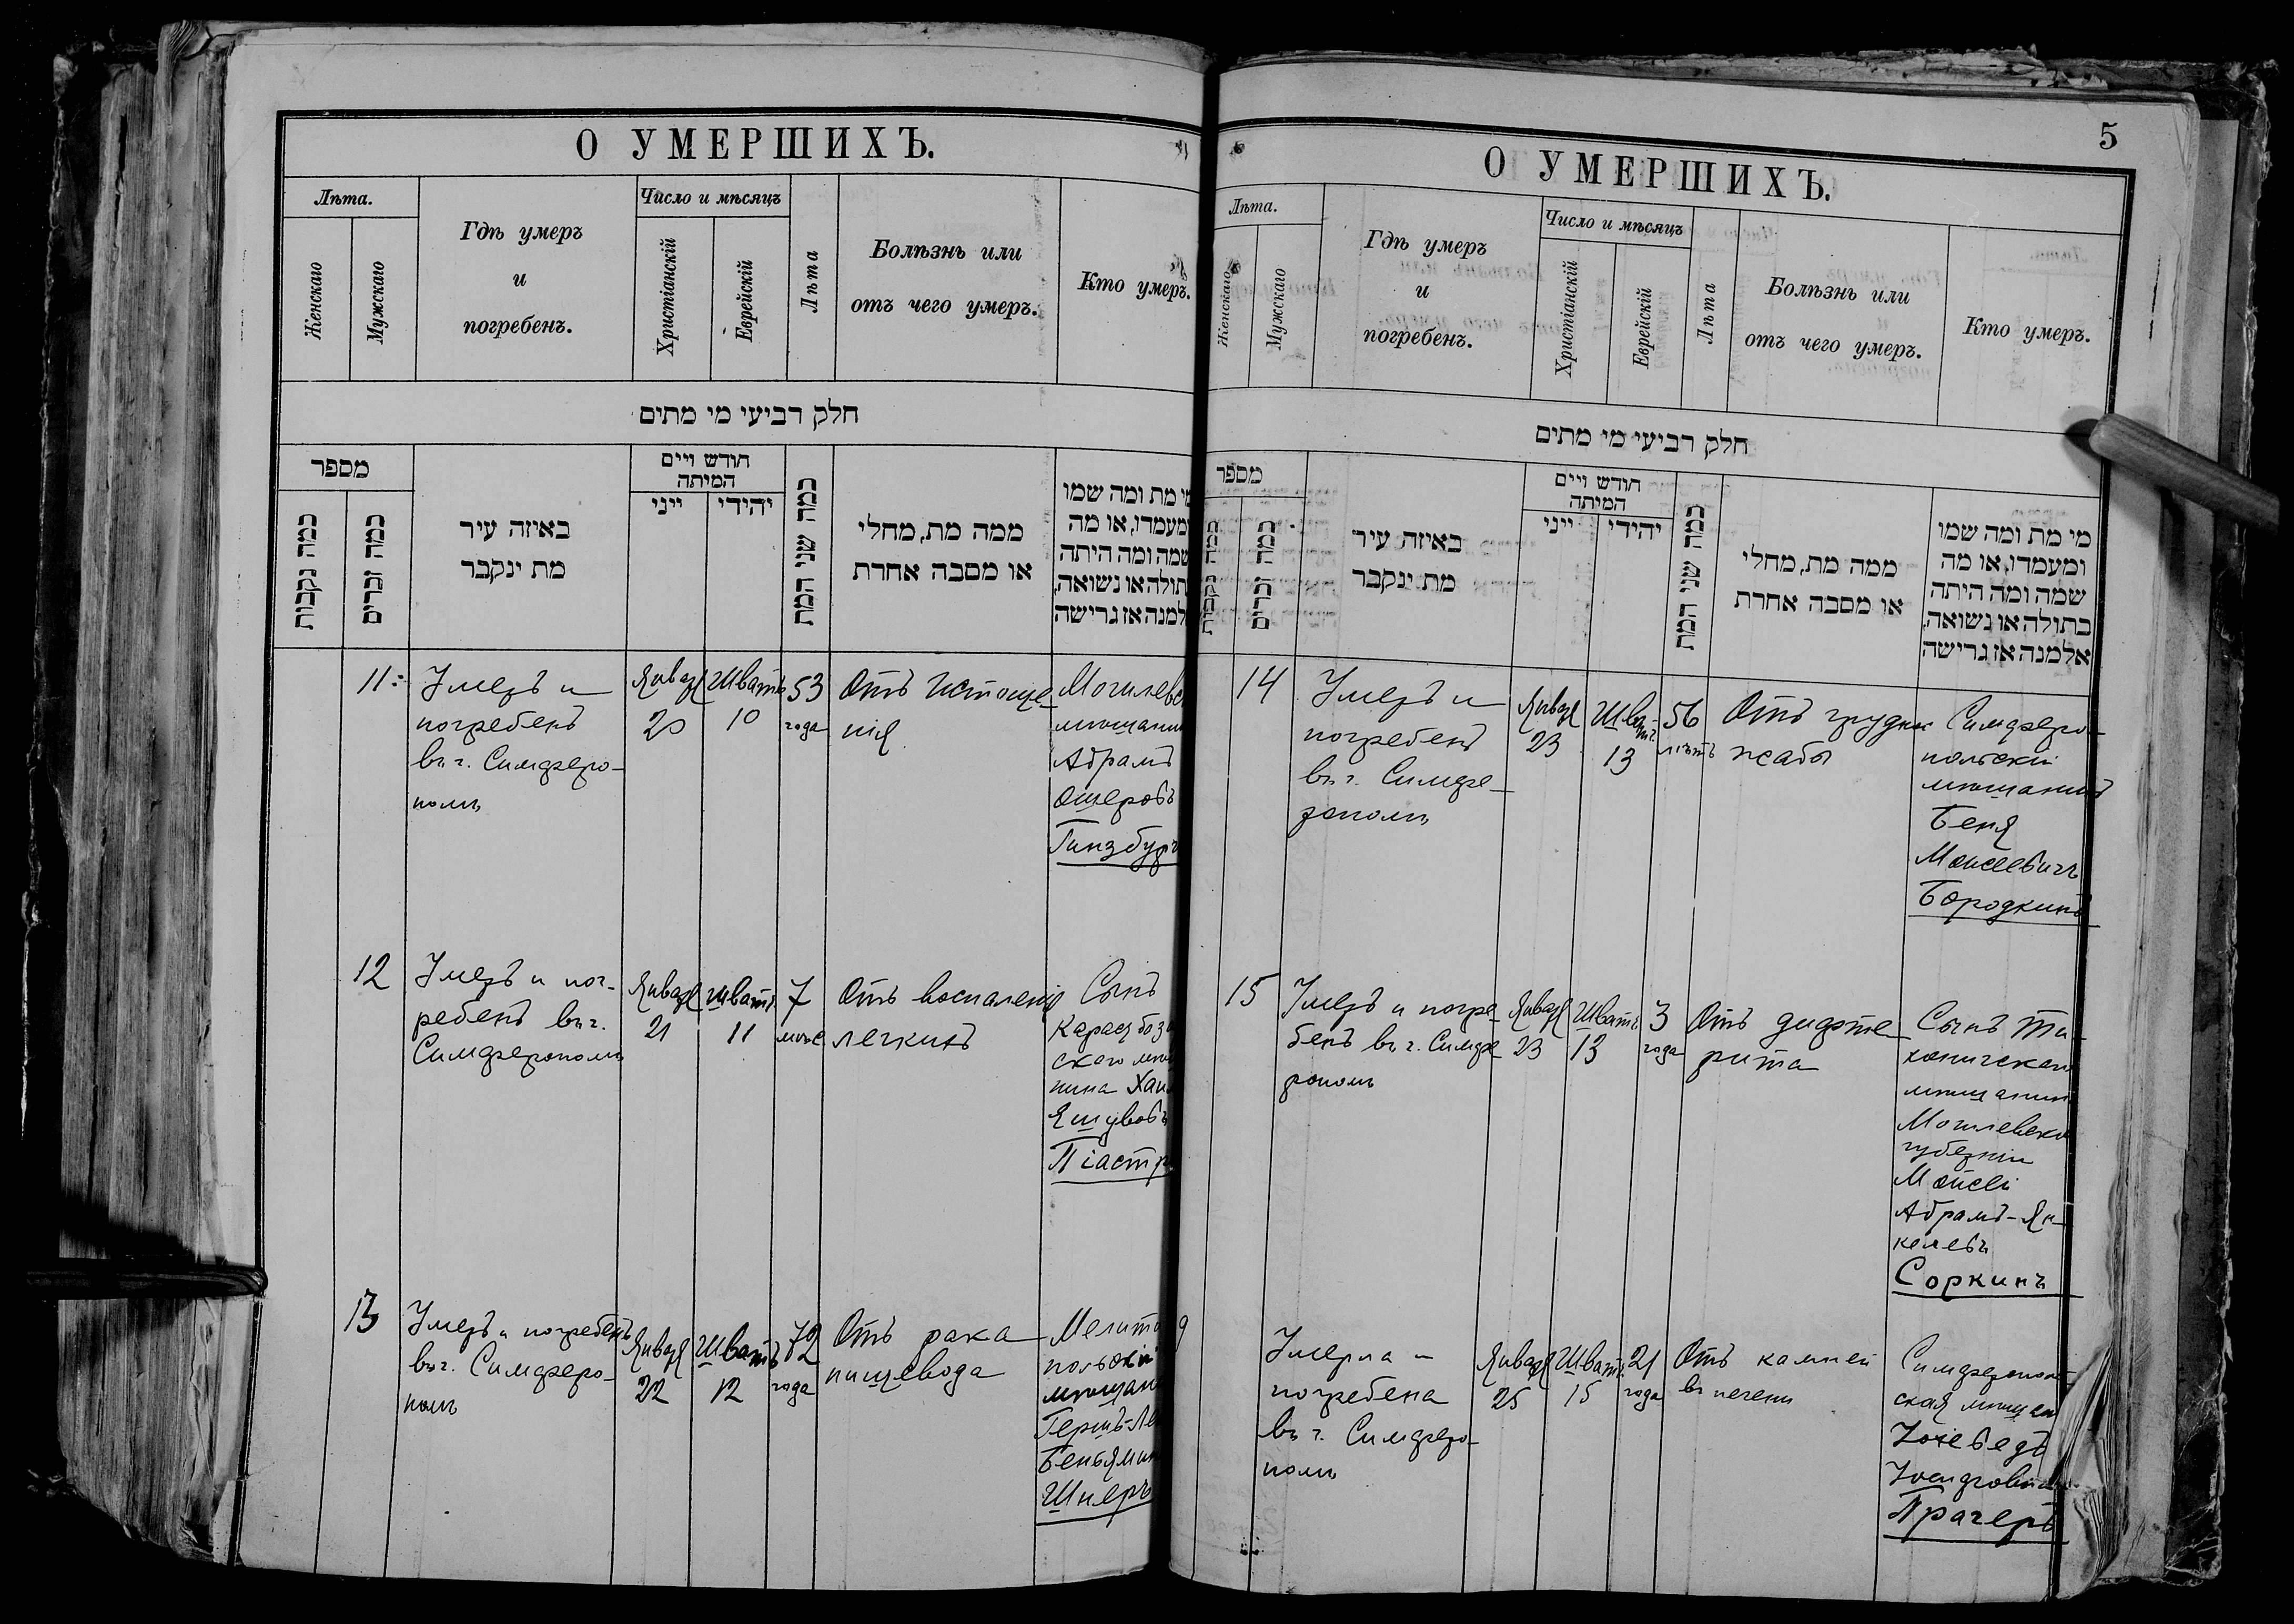 О УМЕРШИХЪ.
Лѣта.
Женскаго
Мужскаго
Гдѣ умеръ
и
погребенъ.
Число и мѣсяцъ
Христіанскій
Еврейскій
Лѣта
Болѣзнь или
отъ чего умеръ.
Кто умеръ.
חלק רביעי מי מתים
מספר
כמה נקבות
כמה זכרים
באיזה עיר
מת ינקבר
חודש ויים
המיתה
ייני
יהידי
כמה שני המת
ממה מת, מחלי
או מסבה אחרת
מי מת ומה שמו
ומעמדו, או מה
שמה ומה היתה
בתולה או נשואה,
אלמנה אז גרישה
11
Умеръ и
погребенъ
въ г. Симферо-
полѣ
Января
20
Шватъ
10
53
года
Отъ истоще-
нія
Могилевс
мѣщанин
Абрамъ
Ошеровъ
Гинзбург
12
Умеръ и пог-
ребенъ въ г.
Симферополѣ
Января
21
Шватъ
11
7
мѣс
Отъ воспаленія
легкихъ
Сынъ
Карасубоз
скаго мѣщ
нина Хаи
Ешувовъ
Піастр
13
Умеръ и погребенъ
въ г. Симферо-
полѣ
Января
22
Шватъ
12
72
года
Отъ рака
пищевода
Мелито
польскій
мѣщан
Гершъ-Ле
Беньямин
Шнеръ
5
О УМЕРШИХЪ.
Лѣта.
Женскаго
Мужскаго
Гдѣ умеръ
и
погребенъ.
Число и мѣсяцъ
Христіанскій
Еврейскій
Лѣта
Болѣзнь или
отъ чего умеръ.
Кто умеръ.
חלק רביעי מי מתים
מספר
כמה נקבות
כמה זכרים
באיזה עיר
מת ינקבר
חודש ויים
המיתה
ייני
יהידי
כמה שני המת
ממה מת, מחלי
או מסבה אחרת
מי מת ומה שמו
ומעמדו, או מה
שמה ומה היתה
בתולה או נשואה,
אלמנה אז גרישה
14
Умеръ и
погребенъ
въ г. Симфе-
рополѣ
Января
23
Шва-
тъ
13
56
лѣтъ
Отъ грудной
жабы
Симферо-
польскій
мѣщанинъ
Беня
Моисеевичъ
Бородкинъ
15
Умеръ и погре-
бенъ въ г. Симфе-
рополѣ
Января
23
Шватъ
13
3
года
Отъ дифте-
рита
Сынъ Ти-
хиничскаго
мѣщанин
Могилевской
губерніи
Моисей
Абрамъ-Ян-
келевъ
Соркинъ
9
Умерла и
погребена
въ г. Симферо-
полѣ
Января
25
Шватъ
15
21
года
Отъ камней
въ печени
Симферополь-
ская мѣщан
Іохеведъ
Іосифовна
Прагеръ